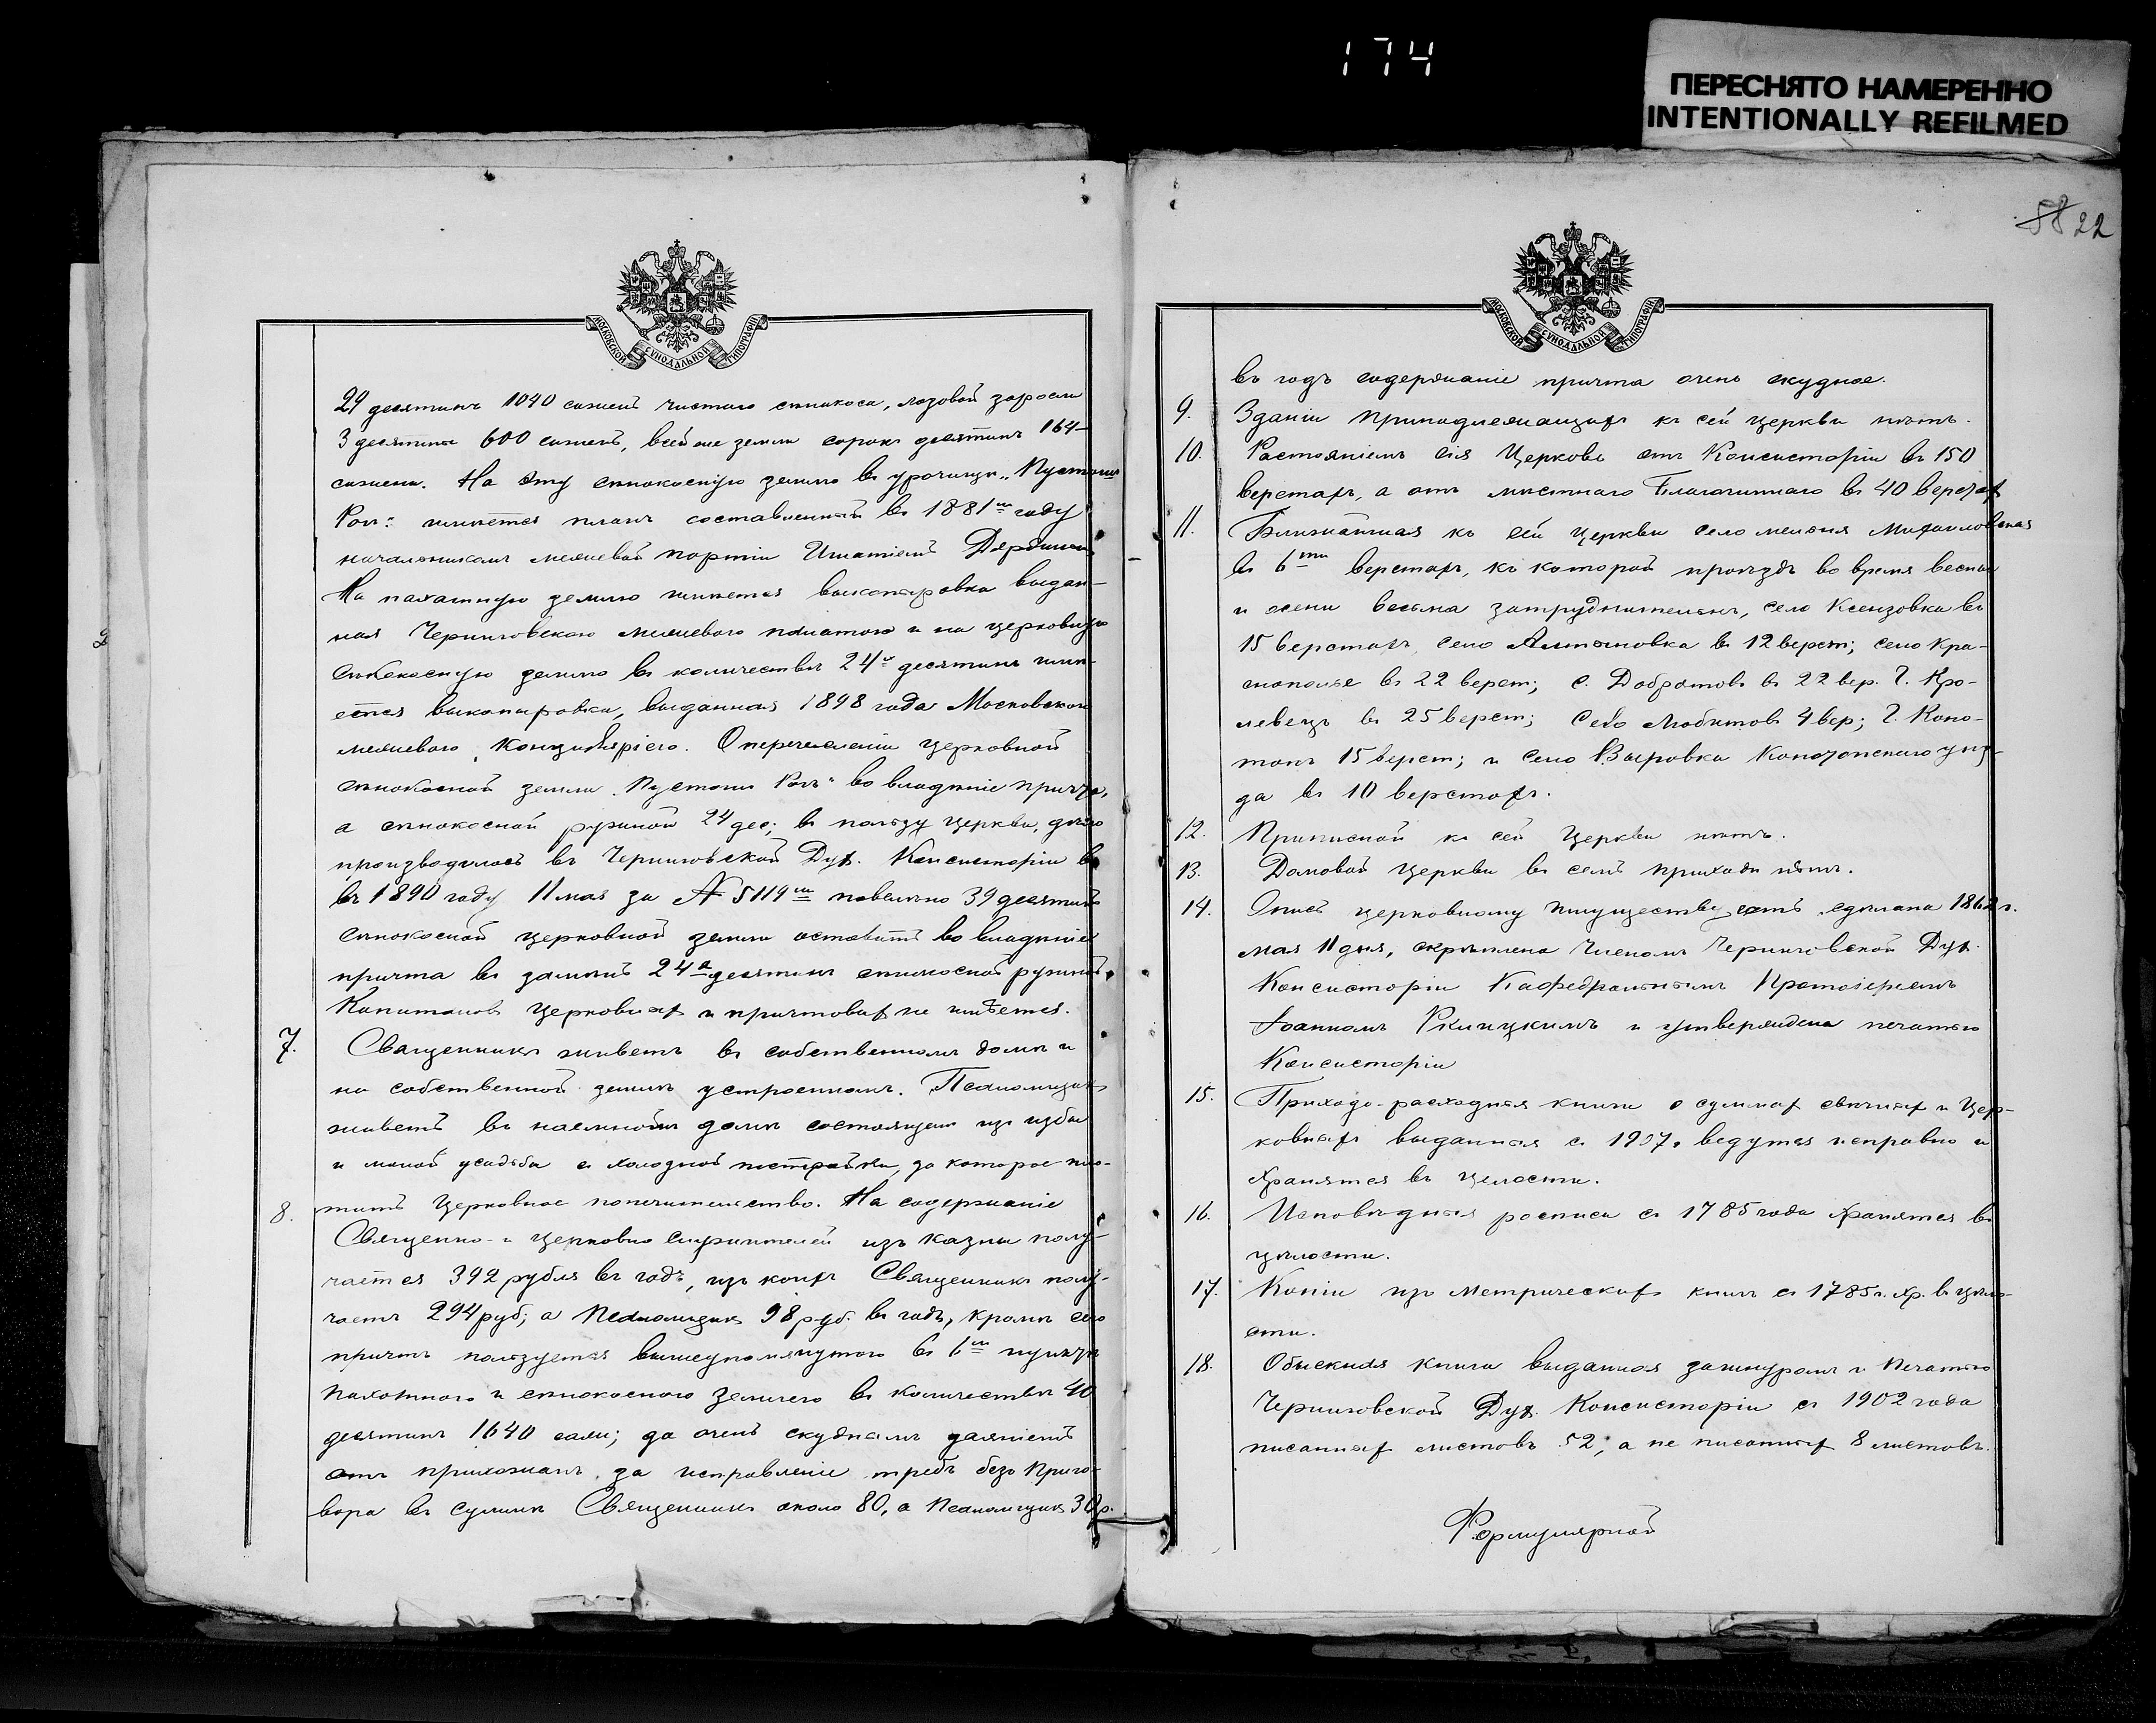 174
ПЕРЕСНЯТО НАМЕРЕННО
INTENTIONALLY REFILMED
МОСКОВСКОЙ СѴНОДАЛЬНОЙ ТИПОГРАФІИ
29 десятинъ 1040 саженъ чистаго сѣнокоса, лозовой заросли
3 десятины 600 саженъ, всей же земли сорокъ десятинъ 164-
сажени. На эту сѣнокосную землю въ урочищѣ „Пустош
Рогъ" имѣется планъ составленный въ 1881 году
начальникомъ межевой партіи Игнатіемъ
На пахатную землю имѣется выкопировка выдан-
ная Черниговскою межевою палатою и на церковную
сѣнокосную землю въ количествѣ 24х десятинъ имѣ-
ется выкопировка, выданная 1898 года Московскою
межевою Канцеляріею. О перечисленіи церковной
сѣнокосной земли „Пустоши Рогъ" во владѣніе причта,
а сѣнокосной ружной 24 дес; въ пользу церкви, дѣло
производилось въ Черниговской Дух. Консисторіи въ
въ 1890 году 11 мая за № 5119 м повелѣно 39 десятинъ
сѣнокосной церковной земли оставить во владѣніе
причта въ замѣнъ 24 х десятинъ сѣнокосной ружной.
Капиталовъ церковныхъ и причтовыхъ не имѣется.
7. Священникъ живетъ въ собственномъ домѣ и
на собственной землѣ устроенномъ. Псаломщикъ
живетъ въ наемномъ домѣ состоящемъ изъ избы
и малой усадьбы съ холодной постройки, за которое пла-
8. титъ Церковное попечительство. На содержаніе
Священно- и церковно служителей изъ казны полу-
чается 392 рубля въ годъ, изъ коихъ Священникъ полу-
чаетъ 294 руб; а Псаломщикъ 98 руб. въ годъ, кромѣ сего
причтъ пользуется вышеупомянутою въ 6 м пунктѣ
пахотною и сѣнокосною землею въ количествѣ 40
десятинъ 1640 саж; да очень скуднымъ даяніемъ
отъ прихожанъ за исправленіе требъ безъ приго-
вора въ суммѣ Священникъ около 80, а Псаломщикъ 30 р.
58 22
МОСКОВСКОЙ СѴНОДАЛЬНОЙ ТИПОГРАФІИ
въ годъ содержаніе причта очень скудное.
9. Зданіи принадлежащихъ къ сей церкви нѣтъ.
10. Растояніемъ сія Церковь отъ Консисторіи въ 150
верстахъ, а отъ мѣстнаго Благочиннаго въ 40 верстах
11. Ближайшая къ сей церкви село меньня Михайловская
въ 6ти верстахъ, къ которой проѣздъ во время весны
и осени весьма затруднителенъ, село Ксензовка въ
15 верстахъ, село Алтыновка въ 12 верст; село Кра-
снополье въ 22 верст; с. Добротовъ въ 22 вер. г. Кро-
левецъ въ 25 верст; село Любитовъ 4 вер; г. Коно-
топъ 15 верст; и село Выровка Конотопскаго уѣз-
да въ 10 верстахъ.
12. Приписной къ сей Церкви нѣтъ.
13. Домовой церкви въ семъ приходѣ нѣтъ.
14. Опись церковному имуществу есть сдѣлана 1862 г.
мая 11 дня, скрѣплена Членомъ Черниговской Дух.
Консисторіи Кафедральнымъ Протоіереемъ
Іоанномъ и утверждена печатью
Консисторіи
15. Приходо-расходныя книги о суммах свѣчных и Цер-
ковныхъ выданныя съ 1907, ведутся исправно и
хранятся въ целости.
16. Исповѣдныя росписи съ 1785 года хранятся въ
цѣлости.
17. Копіи изъ Метрическихъ книгъ съ 1785 г. хр. въ цѣло-
сти.
18. Обыскная книга выданная за шнуромъ и печатью
Черниговской Дух. Консисторіи съ 1902 года
писанных листовъ 52; а не писанных 8 листовъ.
Формулярной